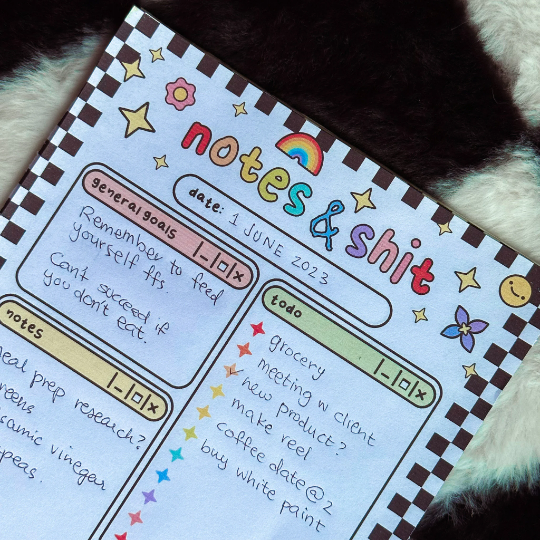 notes & shit
date: 1 JUNE 2023
general goals
Remember to feed
yourself ffs.
Can't succeed if
you don't eat.
notes
meal prep research?
greens
balsamic vinegar
todo
grocery
meeting w client
new product?
make reel
coffee date @ 2
buy white paint